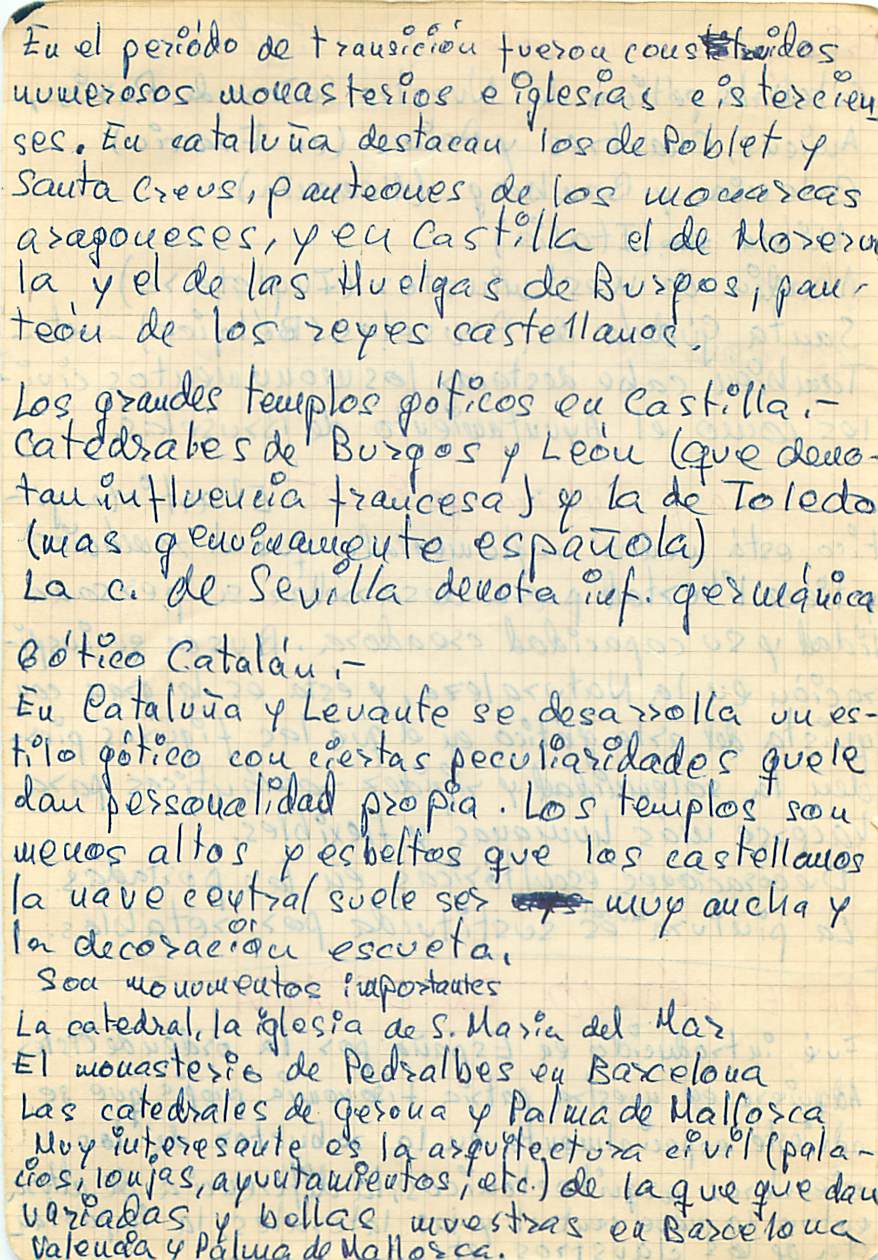 En el periódo de transición fueron construidos
numerosos monasterios e iglesias cistercien
ses. En cataluña destacan los de Poblet y
Santa Creus, panteones de los monarcas
aragoneses, y en Castilla el de Moreru
la y el de las Huelgas de Burgos, pan-
teón de los reyes castellanos.
Los grandes templos góticos en Castilla.-
Catedrales de Burgos y León (que deno-
tan influencia francesa) y la de Toledo
(mas genuinamente española)
La c. de Sevilla denota inf. germánica
Gótico Catalán.-
En Cataluña y Levante se desarrolla un es-
tilo gótico con ciertas peculiaridades que le
dan personalidad propia. Los templos son
menos altos y esbeltos que los castellanos
la nave central suele ser muy ancha y
la decoración escueta.
Son monumentos importantes
La catedral, la iglesia de S. Maria del Mar
El monasterio de Pedralbes en Barcelona
Las catedrales de Gerona y Palma de Mallorca
Muy interesante es la arquitectura civil (pala-
cios, lonjas, ayuntamientos, etc.) de la que que dan
variadas y bellas muestras en Barcelona
Valencia y Palma de Mallorca.